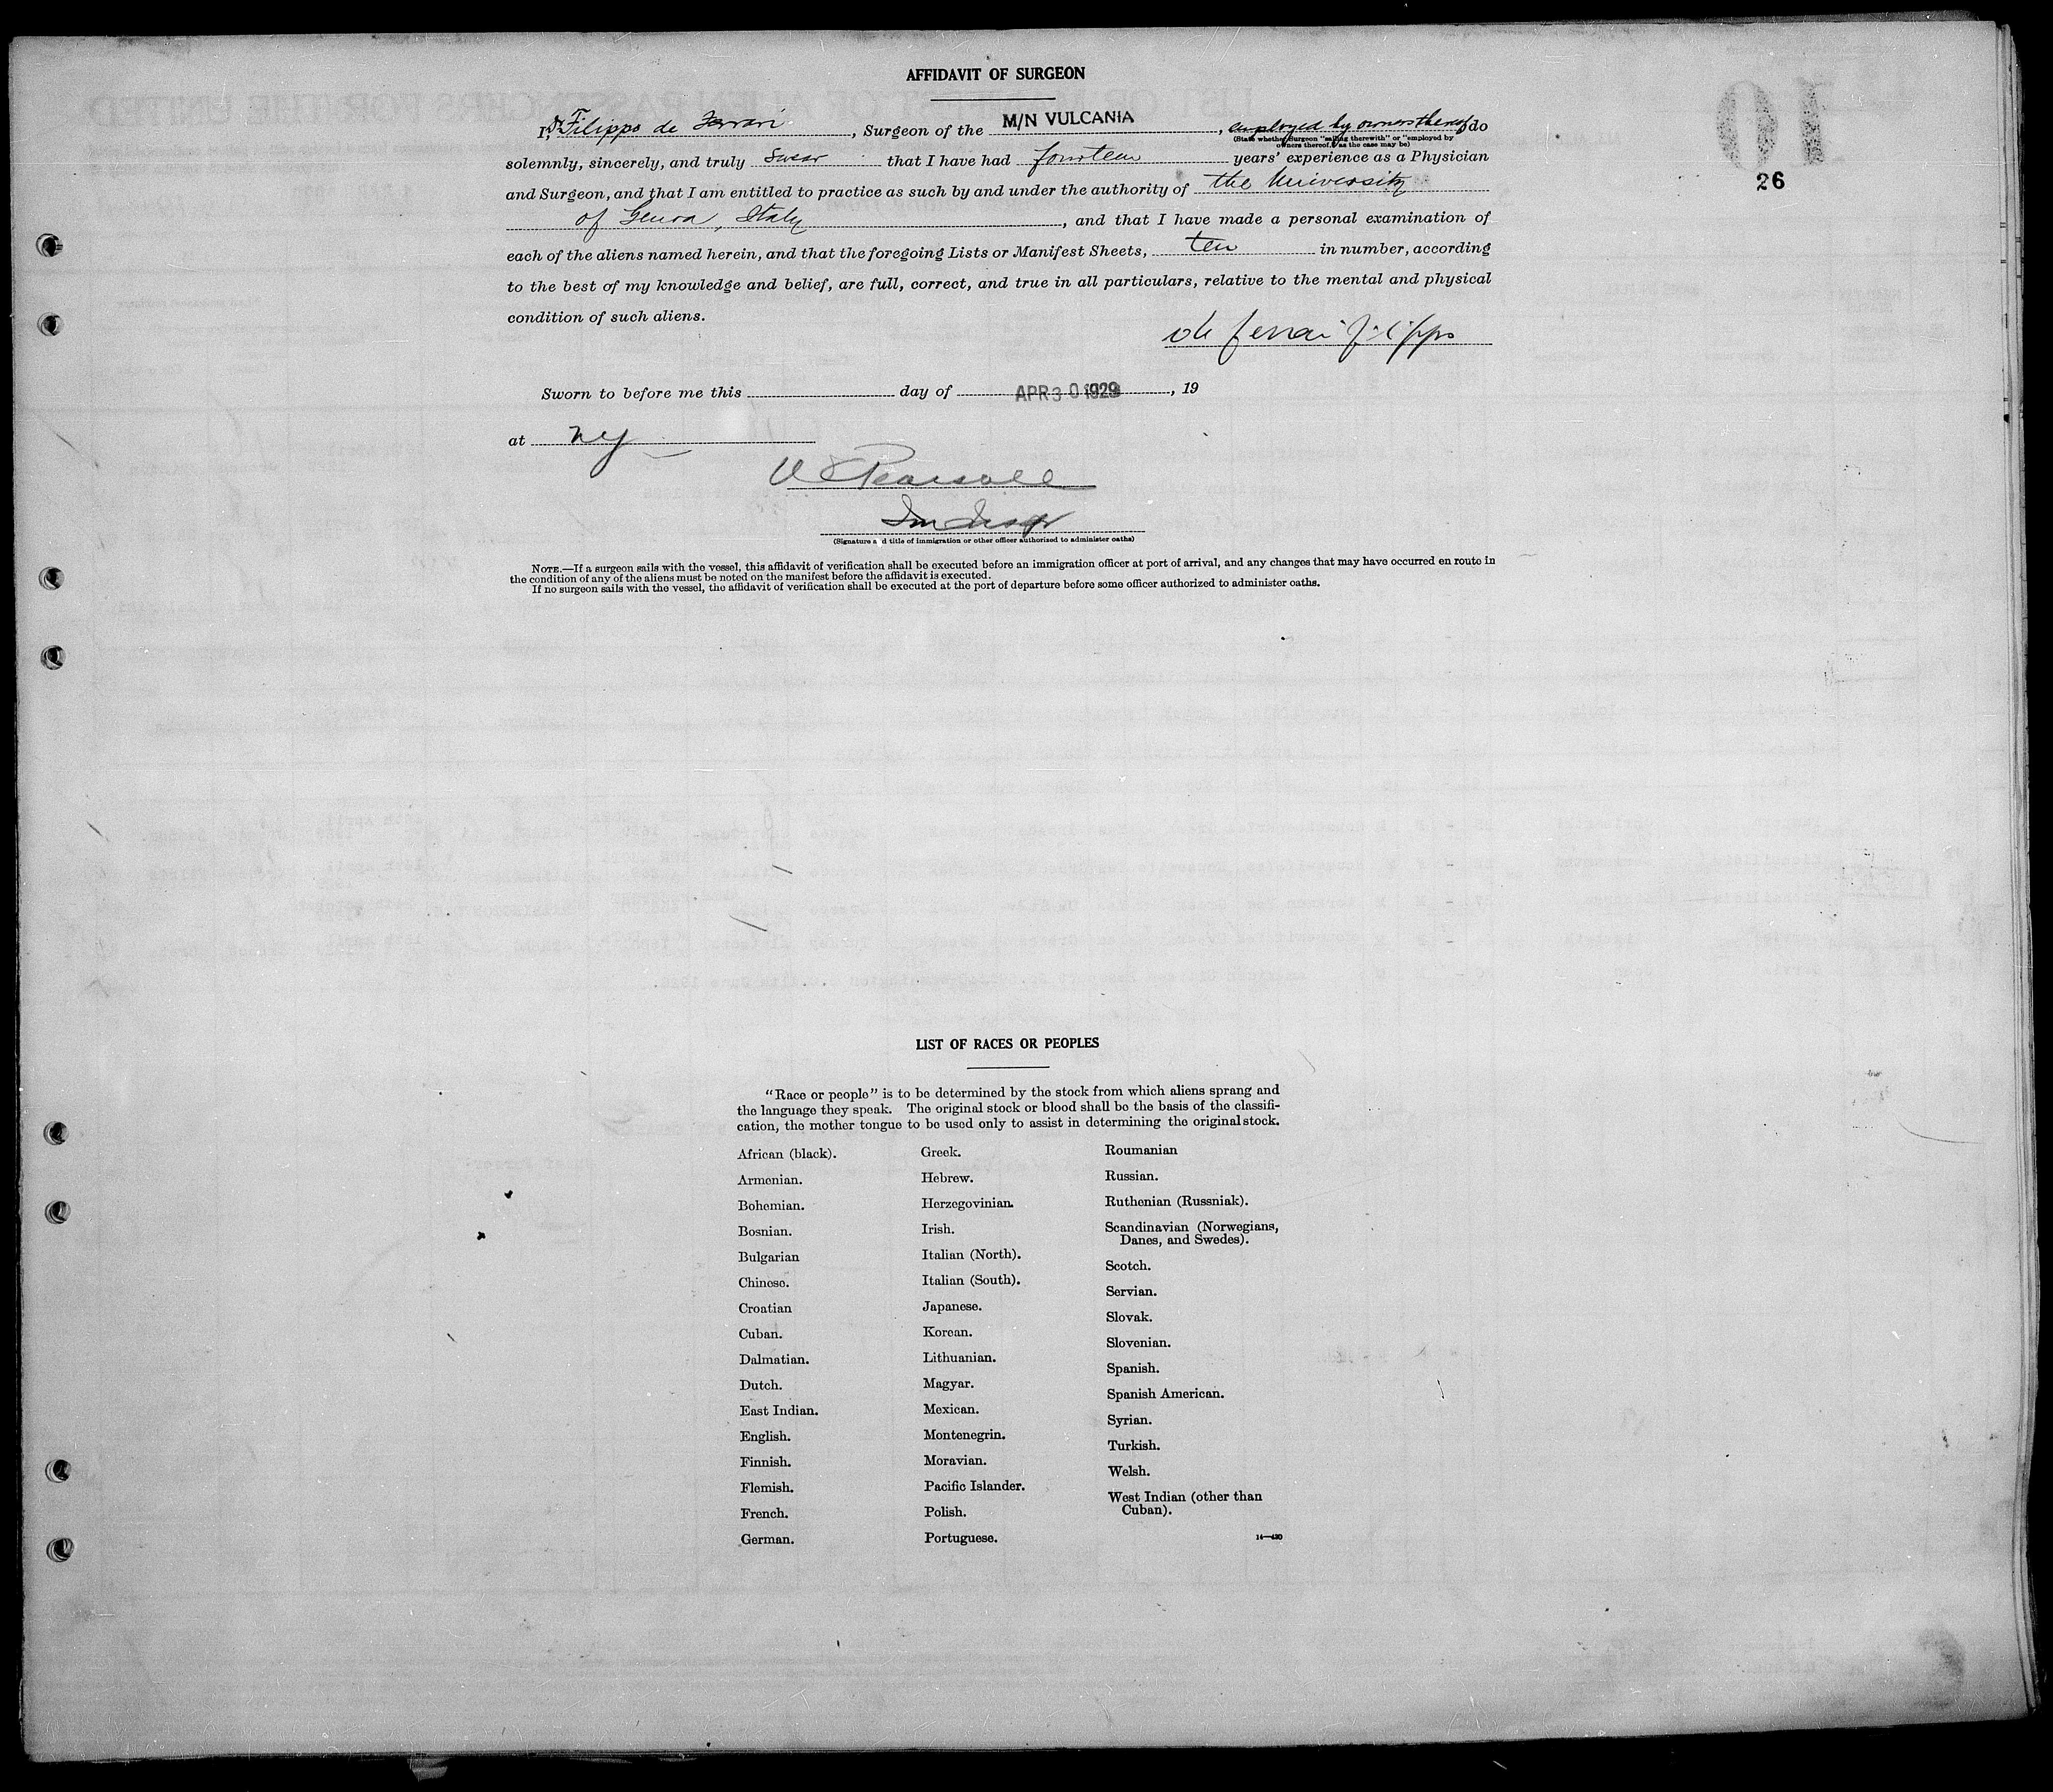 AFFIDAVIT OF SURGEON
I, Dr Filippo de Ferrari, Surgeon of the M/N VULCANIA, employed by owners thereof do
(State whether Surgeon "sailing therewith" or "employed by
owners thereof," as the case may be)
26
solemnly, sincerely, and truly swear that I have had fourteen years' experience as a Physician
and Surgeon, and that I am entitled to practice as such by and under the authority of the University
of Genoa, Italy, and that I have made a personal examination of
each of the aliens named herein, and that the foregoing Lists or Manifest Sheets, ten in number, according
to the best of my knowledge and belief, are full, correct, and true in all particulars, relative to the mental and physical
condition of such aliens.
de Ferrari Filippo
Sworn to before me this day of APR 30 1929, 19
at NY
Pearsall
Im Inspr
(Signature and title of immigration or other officer authorized to administer oaths)
NOTE.—If a surgeon sails with the vessel, this affidavit of verification shall be executed before an immigration officer at port of arrival, and any changes that may have occurred en route in
the condition of any of the aliens must be noted on the manifest before the affidavit is executed.
If no surgeon sails with the vessel, the affidavit of verification shall be executed at the port of departure before some officer authorized to administer oaths.
LIST OF RACES OR PEOPLES
"Race or people" is to be determined by the stock from which aliens sprang and
the language they speak. The original stock or blood shall be the basis of the classifi-
cation, the mother tongue to be used only to assist in determining the original stock.
African (black).
Armenian.
Bohemian.
Bosnian.
Bulgarian
Chinese.
Croatian
Cuban.
Dalmatian.
Dutch.
East Indian.
English.
Finnish.
Flemish.
French.
German.
Greek.
Hebrew.
Herzegovinian.
Irish.
Italian (North).
Italian (South).
Japanese.
Korean.
Lithuanian.
Magyar.
Mexican.
Montenegrin.
Moravian.
Pacific Islander.
Polish.
Portuguese.
Roumanian
Russian.
Ruthenian (Russniak).
Scandinavian (Norwegians,
Danes, and Swedes).
Scotch.
Servian.
Slovak.
Slovenian.
Spanish.
Spanish American.
Syrian.
Turkish.
Welsh.
West Indian (other than
Cuban).